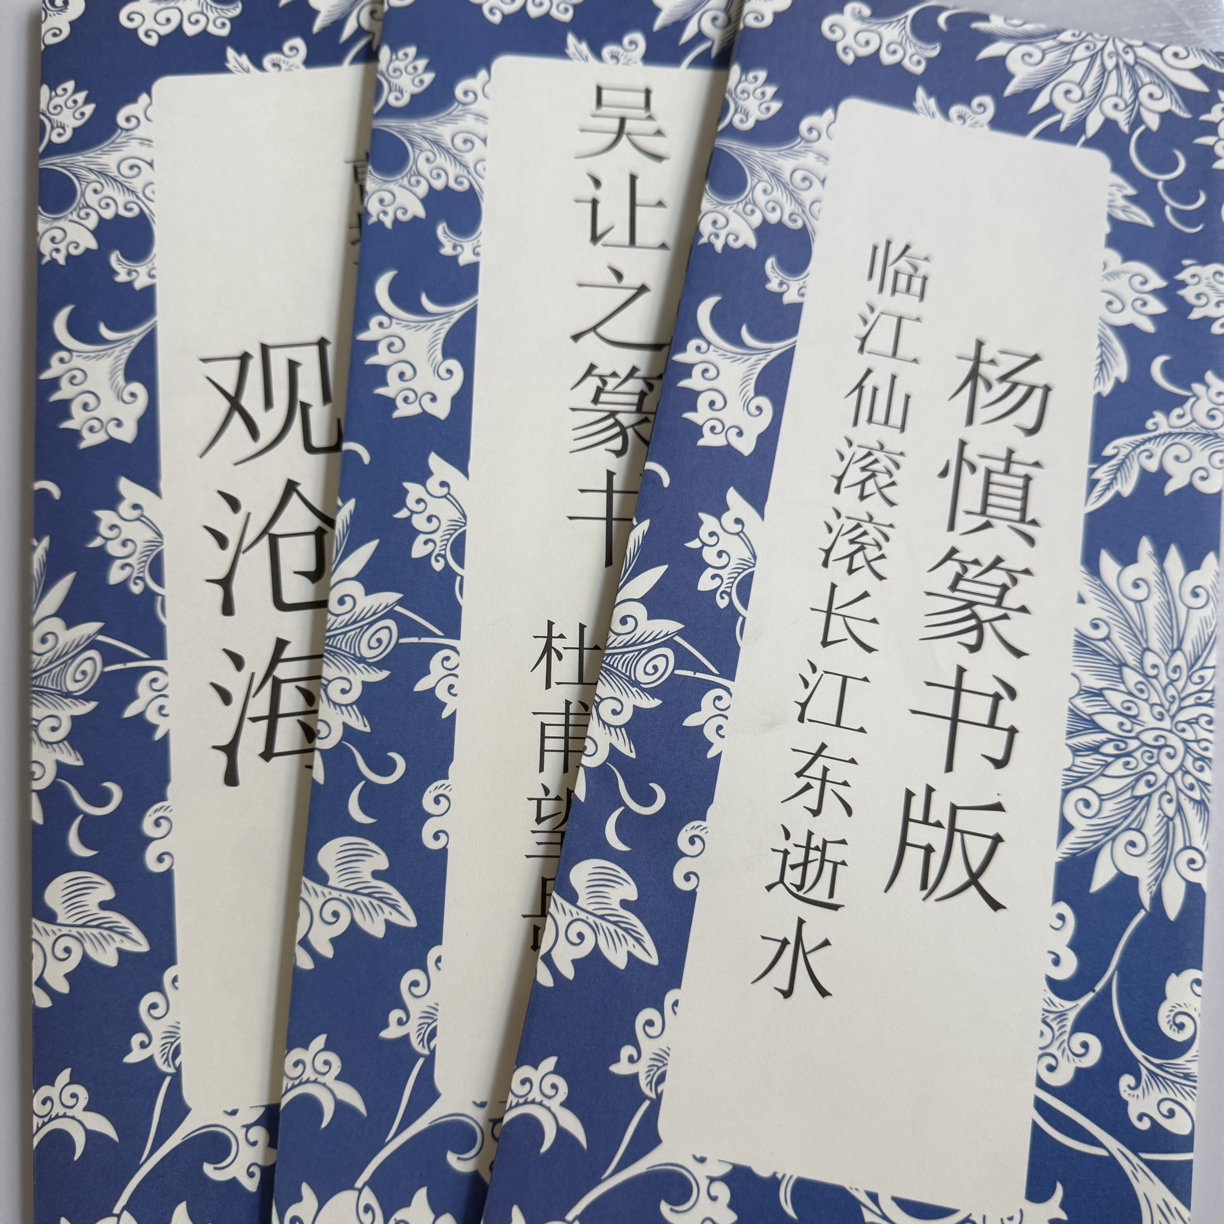 观沧海
吴让之篆书
杜甫望岳
杨慎篆书版
临江仙滚滚长江东逝水